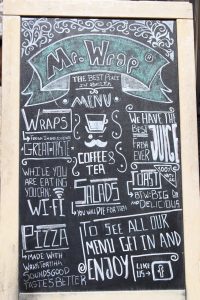 Mr. Wrap
THE BEST PLACE
MENU
WRAPS
FRESH INGREDIENTS
GREAT TASTE
WHILE YOU
ARE EATING
YOU CAN
WI-FI
PIZZA
MADE WITH
SOUNDS GOOD
TASTES BETTER
COFFEE &
TEA
SALADS
YOU WILL DIE FOR THEM
WE HAVE THE
BEST
FRESH
EVER
JUICE
TOAST
BTW: BIG
AND
DELICIOUS
TO SEE ALL OUR
MENU GET IN AND
ENJOY
LIKE US